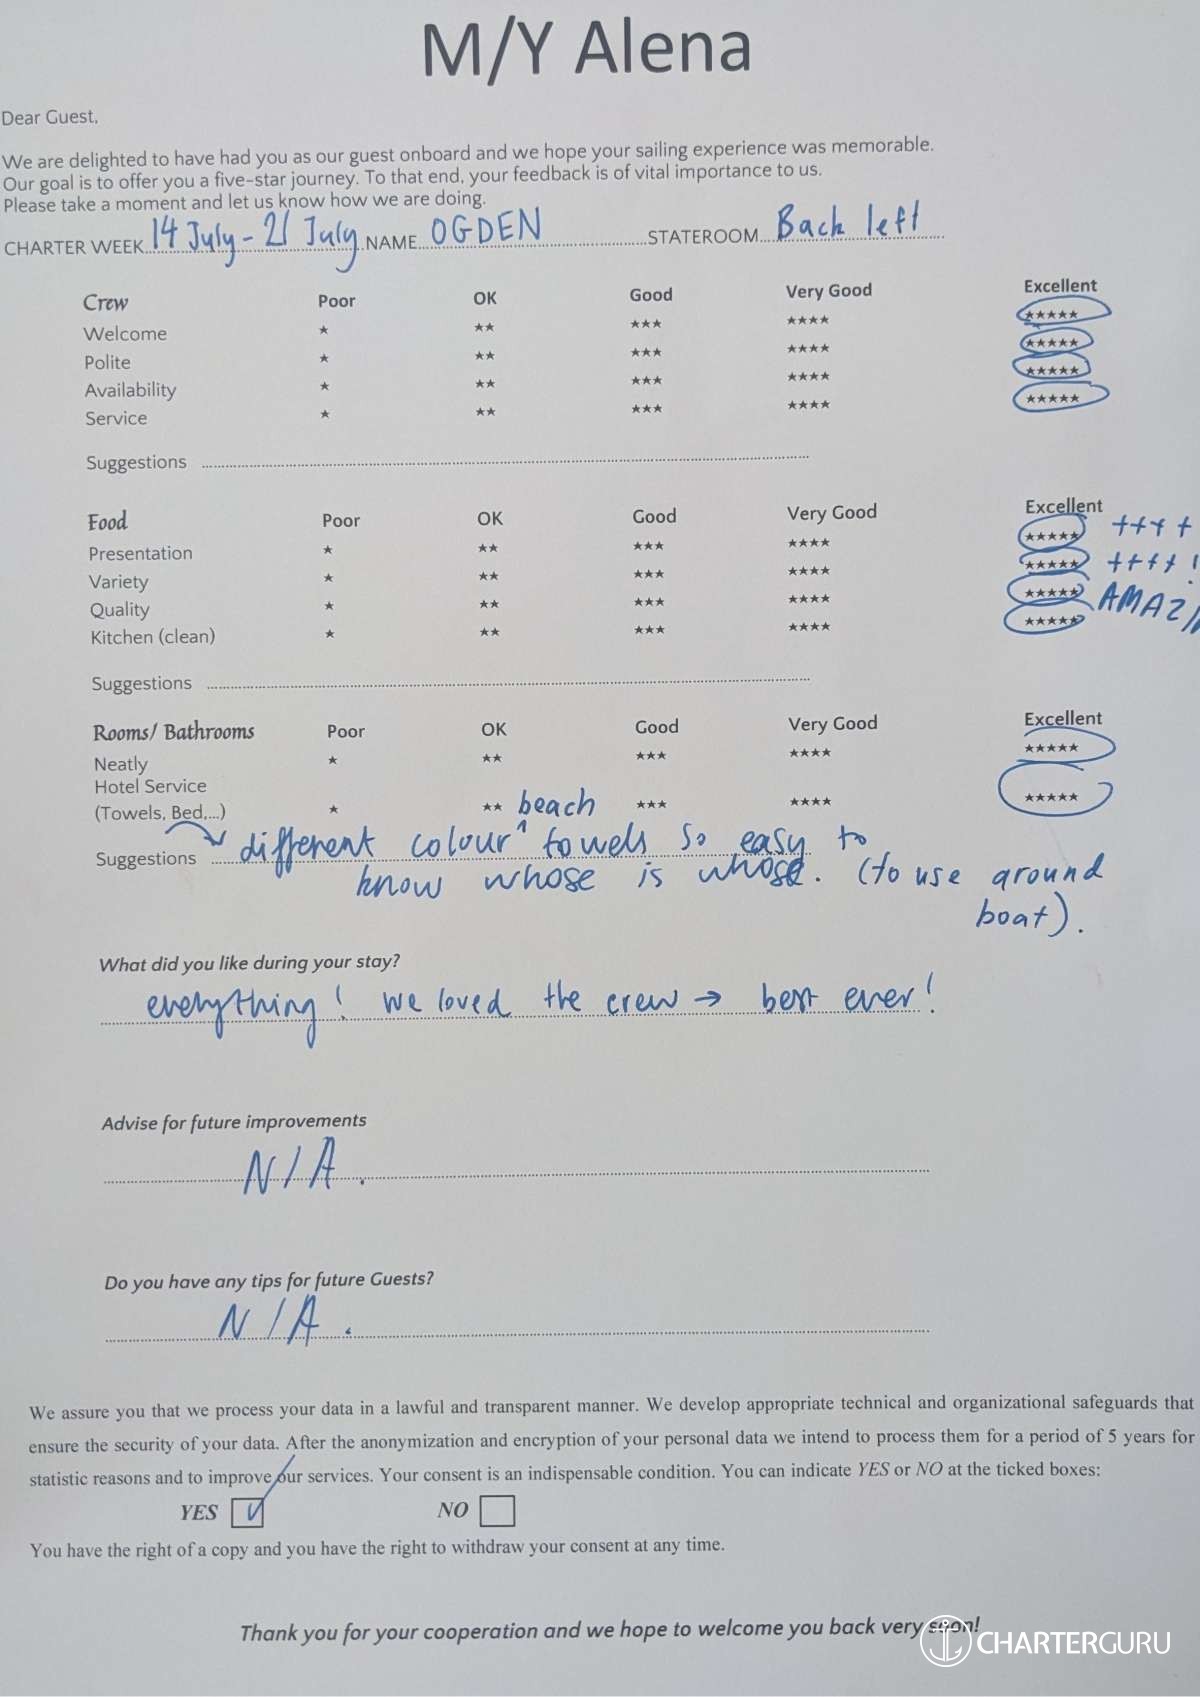 M/Y Alena
Dear Guest,
We are delighted to have had you as our guest onboard and we hope your sailing experience was memorable.
Our goal is to offer you a five-star journey. To that end, your feedback is of vital importance to us.
Please take a moment and let us know how we are doing.
CHARTER WEEK 14 July - 21 July NAME OGDEN STATEROOM Back left
Crew Poor OK Good Very Good Excellent
Welcome ★ ★★ ★★★ ★★★★ ★★★★★
Polite ★ ★★ ★★★ ★★★★ ★★★★★
Availability ★ ★★ ★★★ ★★★★ ★★★★★
Service ★ ★★ ★★★ ★★★★ ★★★★★
Suggestions
Food Poor OK Good Very Good Excellent
Presentation ★ ★★ ★★★ ★★★★ ★★★★★ ++++
Variety ★ ★★ ★★★ ★★★★ ★★★★★ ++++!
Quality ★ ★★ ★★★ ★★★★ ★★★★★
Kitchen (clean) ★ ★★ ★★★ ★★★★ ★★★★★
Suggestions
Rooms/ Bathrooms Poor OK Good Very Good Excellent
Neatly ★ ★★ ★★★ ★★★★ ★★★★★
Hotel Service
(Towels, Bed,...) ★ ★★ ★★★ ★★★★ ★★★★★
beach
Suggestions different colour ^ towels so easy to
know whose is whose. (to use around
boat).
What did you like during your stay?
everything! we loved the crew → best ever!
Advise for future improvements
N/A.
Do you have any tips for future Guests?
N/A.
We assure you that we process your data in a lawful and transparent manner. We develop appropriate technical and organizational safeguards that
ensure the security of your data. After the anonymization and encryption of your personal data we intend to process them for a period of 5 years for
statistic reasons and to improve our services. Your consent is an indispensable condition. You can indicate YES or NO at the ticked boxes:
YES ✓ NO
You have the right of a copy and you have the right to withdraw your consent at any time.
Thank you for your cooperation and we hope to welcome you back very soon!
CHARTERGURU